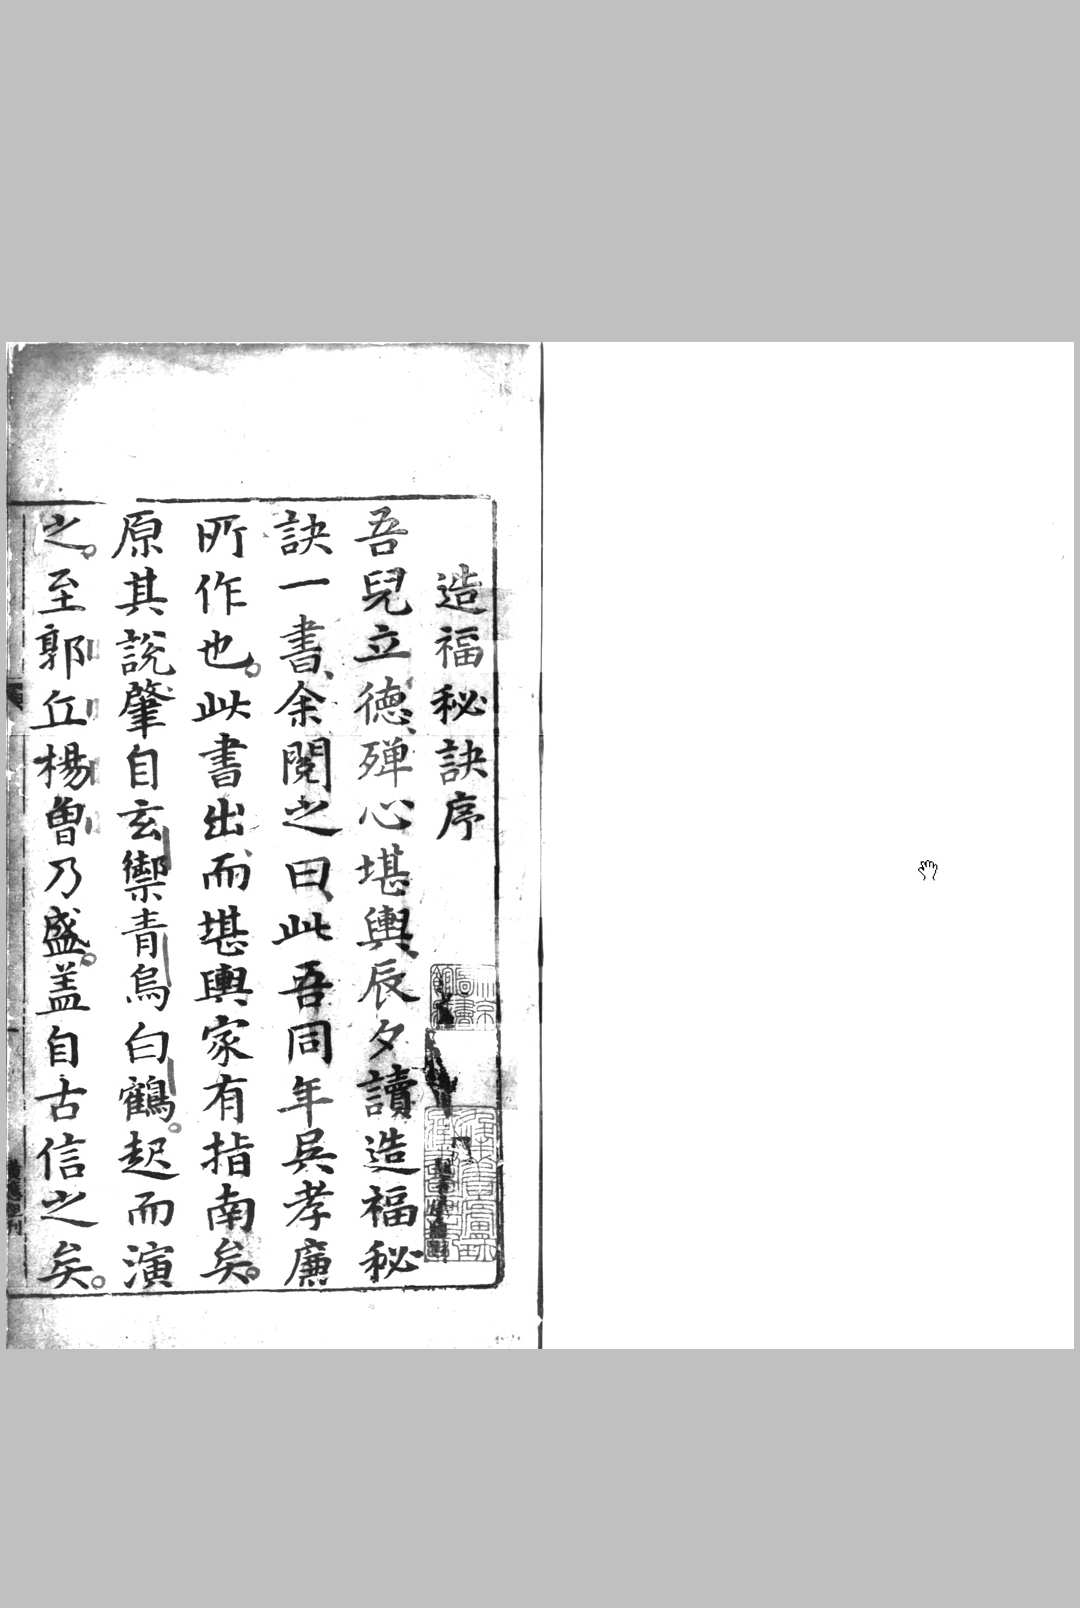 造福秘訣序
吾兒立德殫心堪輿辰夕讀造福秘
訣一書余閱之曰此吾同年吳孝廉
所作也此書出而堪輿家有指南矣
原其說肇自玄禦青烏白鶴起而演
之至郭丘楊曾乃盛盖自古信之矣